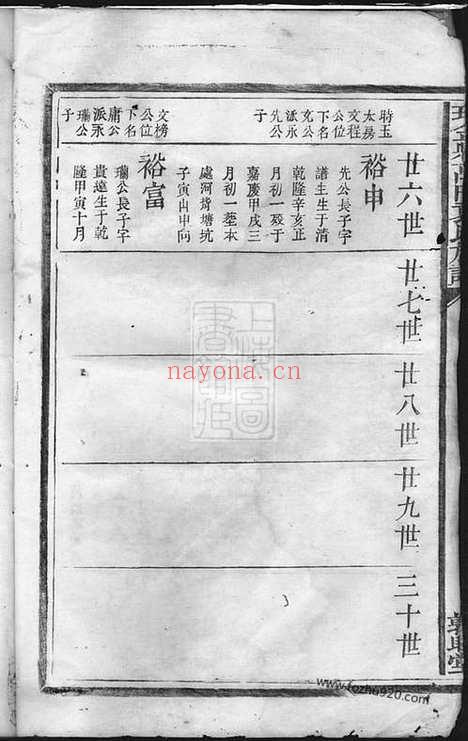 廿六世
廿七世
廿八世
廿九世
三十世
時玉
太房
文程
公位
下名
克公
派永
先公
子
裕申
先公長子字
譜生生于清
乾隆辛亥正
月初一歿于
嘉慶甲戌三
月初一塟本
處河背塘坑
子寅山申向
文榜
公位
下名
庸公
派永
瑞公
子
裕富
瓓公長子字
貴達生于乾
隆甲寅十月
上海圖
書館藏
nayona.cn
www.fozhu920.com